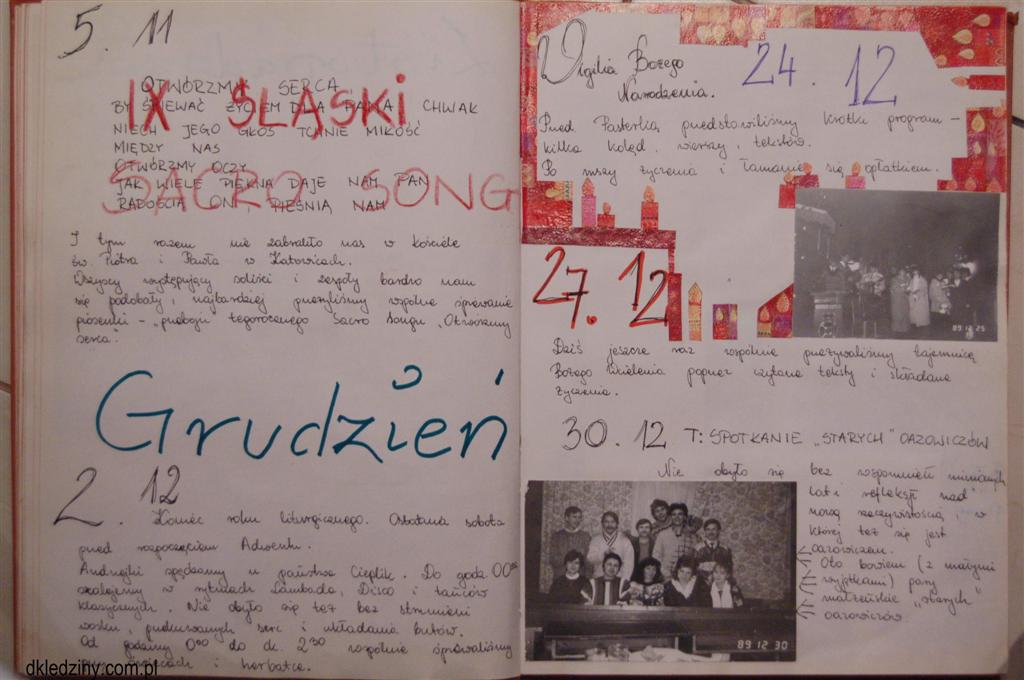 5. 11
IX ŚLĄSKI
SACRO SONG
OTWÓRZMY SERCA
BY ŚPIEWAĆ ŻYCIEM DLA PANA CHWAŁ
NIECH JEGO GŁOS TCHNIE MIŁOŚĆ
MIĘDZY NAS
OTWÓRZMY OCZY
JAK WIELE PIĘKNA DAJE NAM PAN
RADOŚCIĄ ON, PIEŚNIĄ NAM
I tym razem nie zabrakło nas w kościele
św. Piotra i Pawła w Katowicach.
Wszyscy występujący soliści i zespoły bardzo nam
się podobały, najbardziej przeżyliśmy wspólne śpiewanie
piosenki - "przeboju tegorocznego Sacro Songu "Otwórzmy
serca".
Grudzień
2. 12
Koniec roku liturgicznego. Ostatnia sobota
przed rozpoczęciem Adwentu.
Andrzejki spędzamy u państwa Cieplik. Do godz. 00
szalejemy w rytmach Lambada, Disco i tańców
klasycznych. Nie obyło się też bez
wosku, serc i układania butów.
Od godziny 0⁰⁰ do ok. 2³⁰ wspólnie śpiewaliśmy
przy świecach i herbatce.
dkledziny.com.pl
Wigilia Bożego
Narodzenia.
24. 12
Przed Pasterką przedstawiliśmy krótki program -
kilka kolęd, wierszy, tekstów.
Po mszy życzenia i łamanie się opłatkiem.
89.12.25
27. 12
Dziś jeszcze raz wspólnie przeżywaliśmy tajemnicę
Bożego Wcielenia poprzez czytane teksty i składane
życzenia.
30. 12 T: SPOTKANIE "STARYCH" OAZOWICZÓW
Nie obyło się bez wspomnień minionych
lat i refleksji nad
nową rzeczywistością, w
której też się jest
oazowiczem.
Oto bowiem (z małymi
wyjątkami) pary
małżeńskie "starych"
oazowiczów.
89 12 30